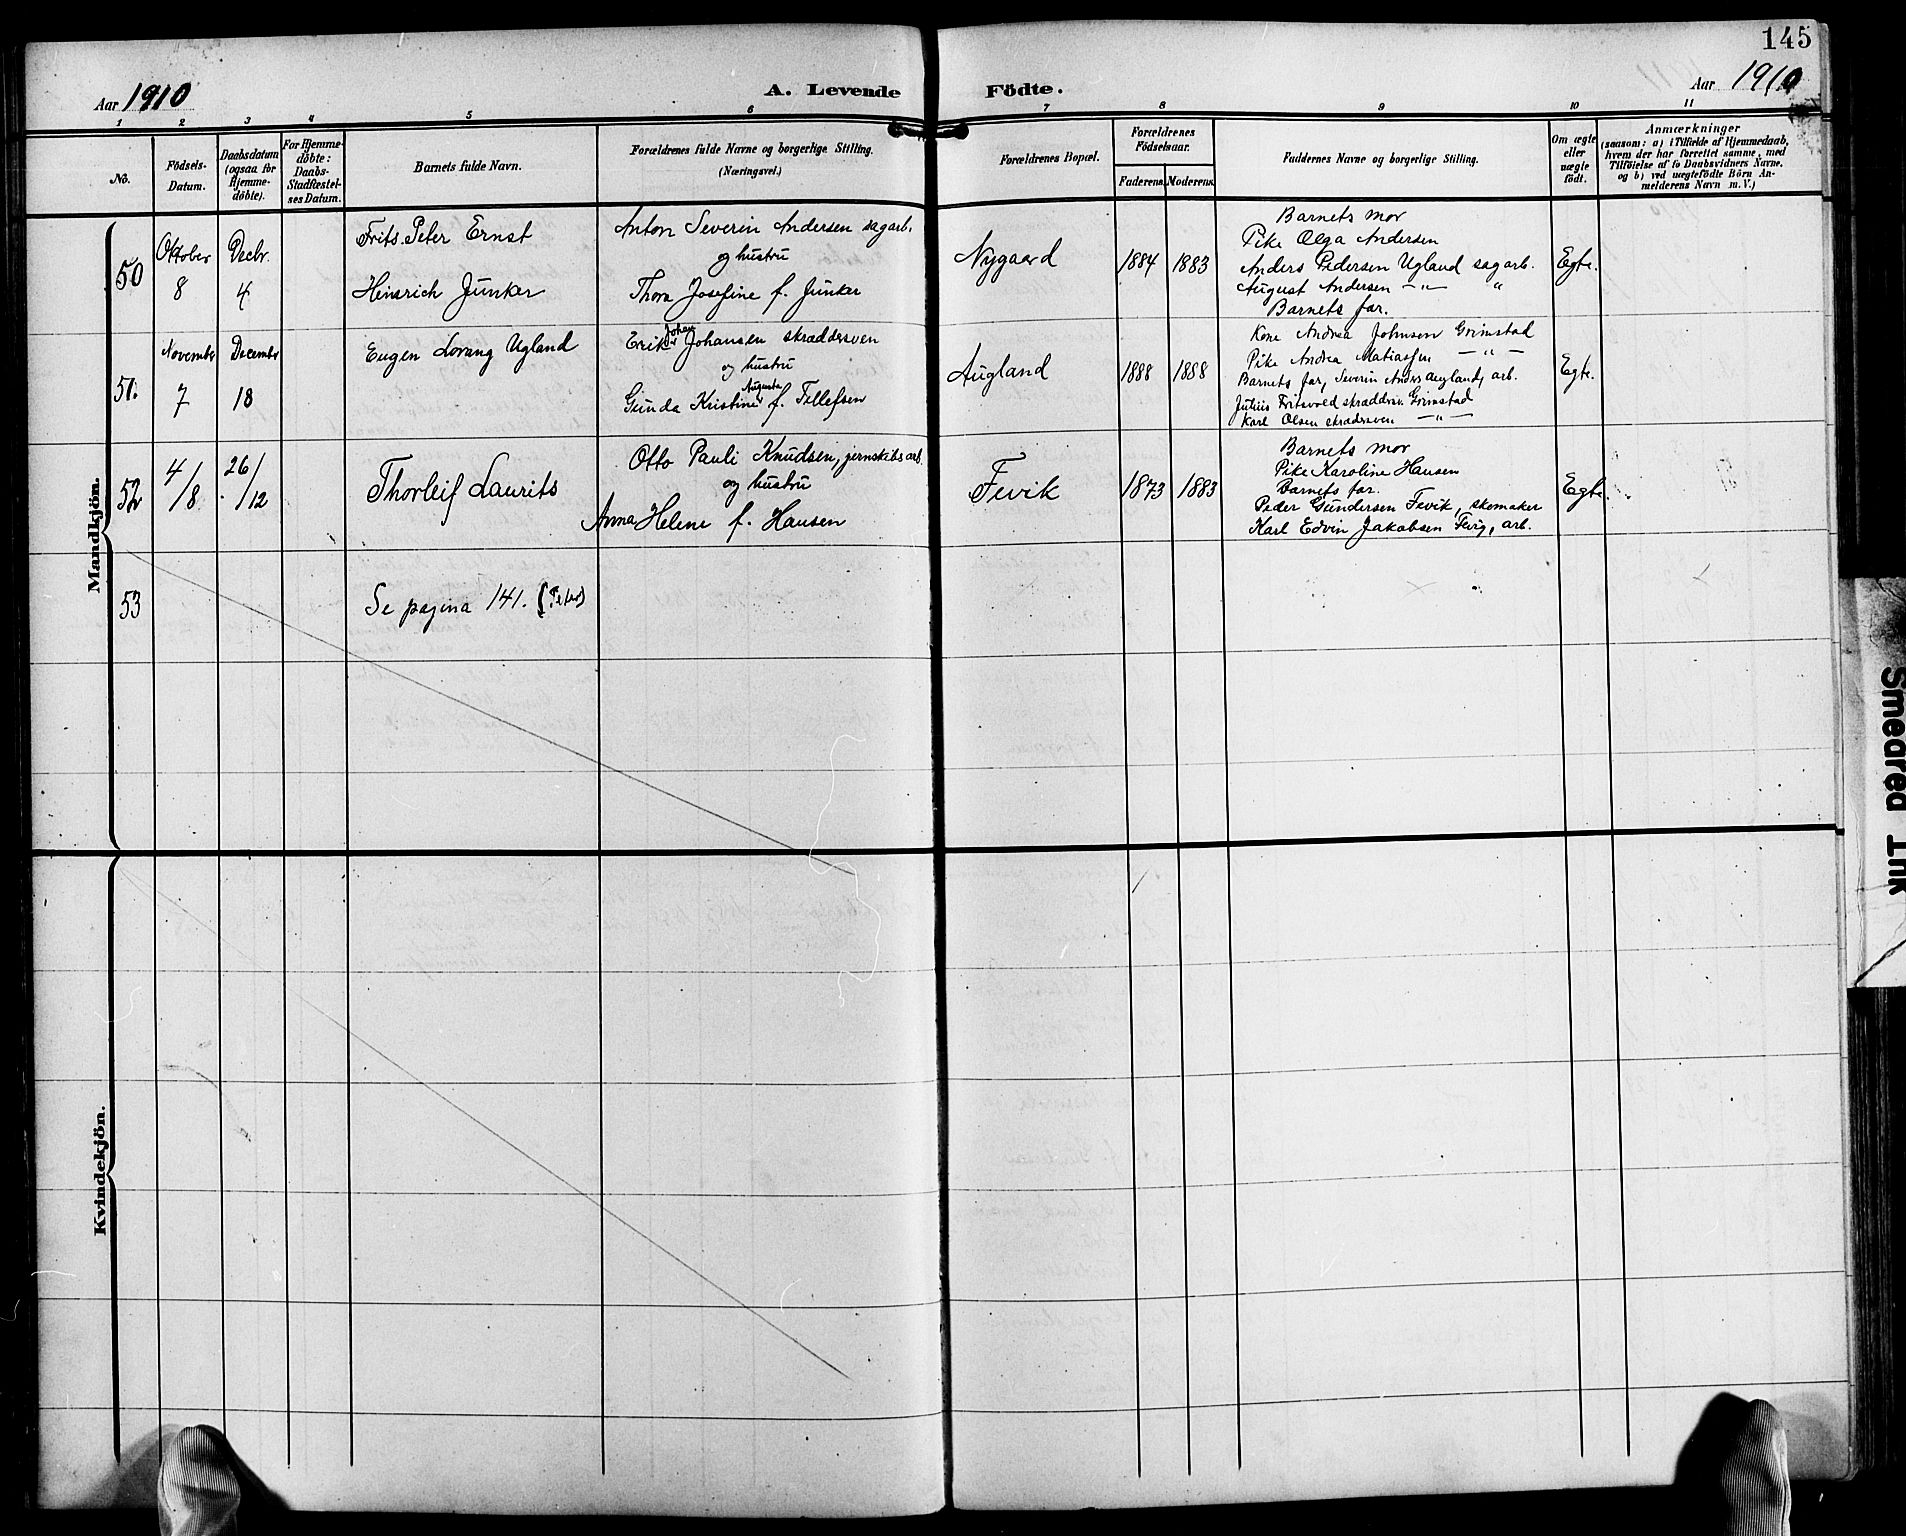 145
Aar 1910
A. Levende Födte.
Aar 1910
1 2 3 4 5 6 7 8 9 10 11
No.
Födsels-Datum.
Daabsdatum (ogsaa for Hjemme-döbte).
For Hjemme-döbte: Daabs-Stadfæstel-ses Datum.
Barnets fulde Navn.
Forældrenes fulde Navne og borgerlige Stilling. (Næringsvei.)
Forældrenes Bopæl.
Forældrenes Födselsaar.
Faderens. Moderens.
Faddernes Navne og borgerlige Stilling.
Om ægte eller uægte födt.
Anmærkninger
(saasom: a) i Tilfælde af Hjemmedaab, hvem der har forrettet samme, med Tilföielse af to Daabsvidners Navne. og b) ved uægtefödte Börn An-melderens Navn m. V.)
Mandkjön.
50
Oktober 8
Decbr. 4
Frits Peter Ernst
Heinrich Junker
Anton Severin Andersen sagarb.
og hustru
Thora Josefine f. Junker
Nygaard
1884 1883
Barnets mor
Pike Olga Andersen
Anders Pedersen Ugland sagarb.
August Andersen —"— "
Barnets far.
Egte.
51.
November 7
December 18
Eugen Lorang Ugland
Erik Johan Johansen skræddersven
og hustru
Gunda Kristine Augusta f. Tellefsen
Augland
1888 1888
Kone Andrea Johnsen Grimstad
Pike Andrea Matiassen —"—
Barnets far, Severin Anders Augland, arb.
Julius Fritsvold skræddersv. Grimstad
Karl Olsen skræddersven —"—
Egte.
52
4/8
26/12
Thorleif Laurits
Otto Pauli Knudsen, jernskibsarb.
og hustru
Anna Helene f. Hansen
Fevik
1873 1883
Barnets mor
Pike Karoline Hansen
Barnets far.
Peder Gundersen Fevik, skomaker
Karl Edvin Jakobsen Fevig, arb.
Egte.
53
Se pagina 141. (Peter)
Kvindekjön.
Smeared Ink